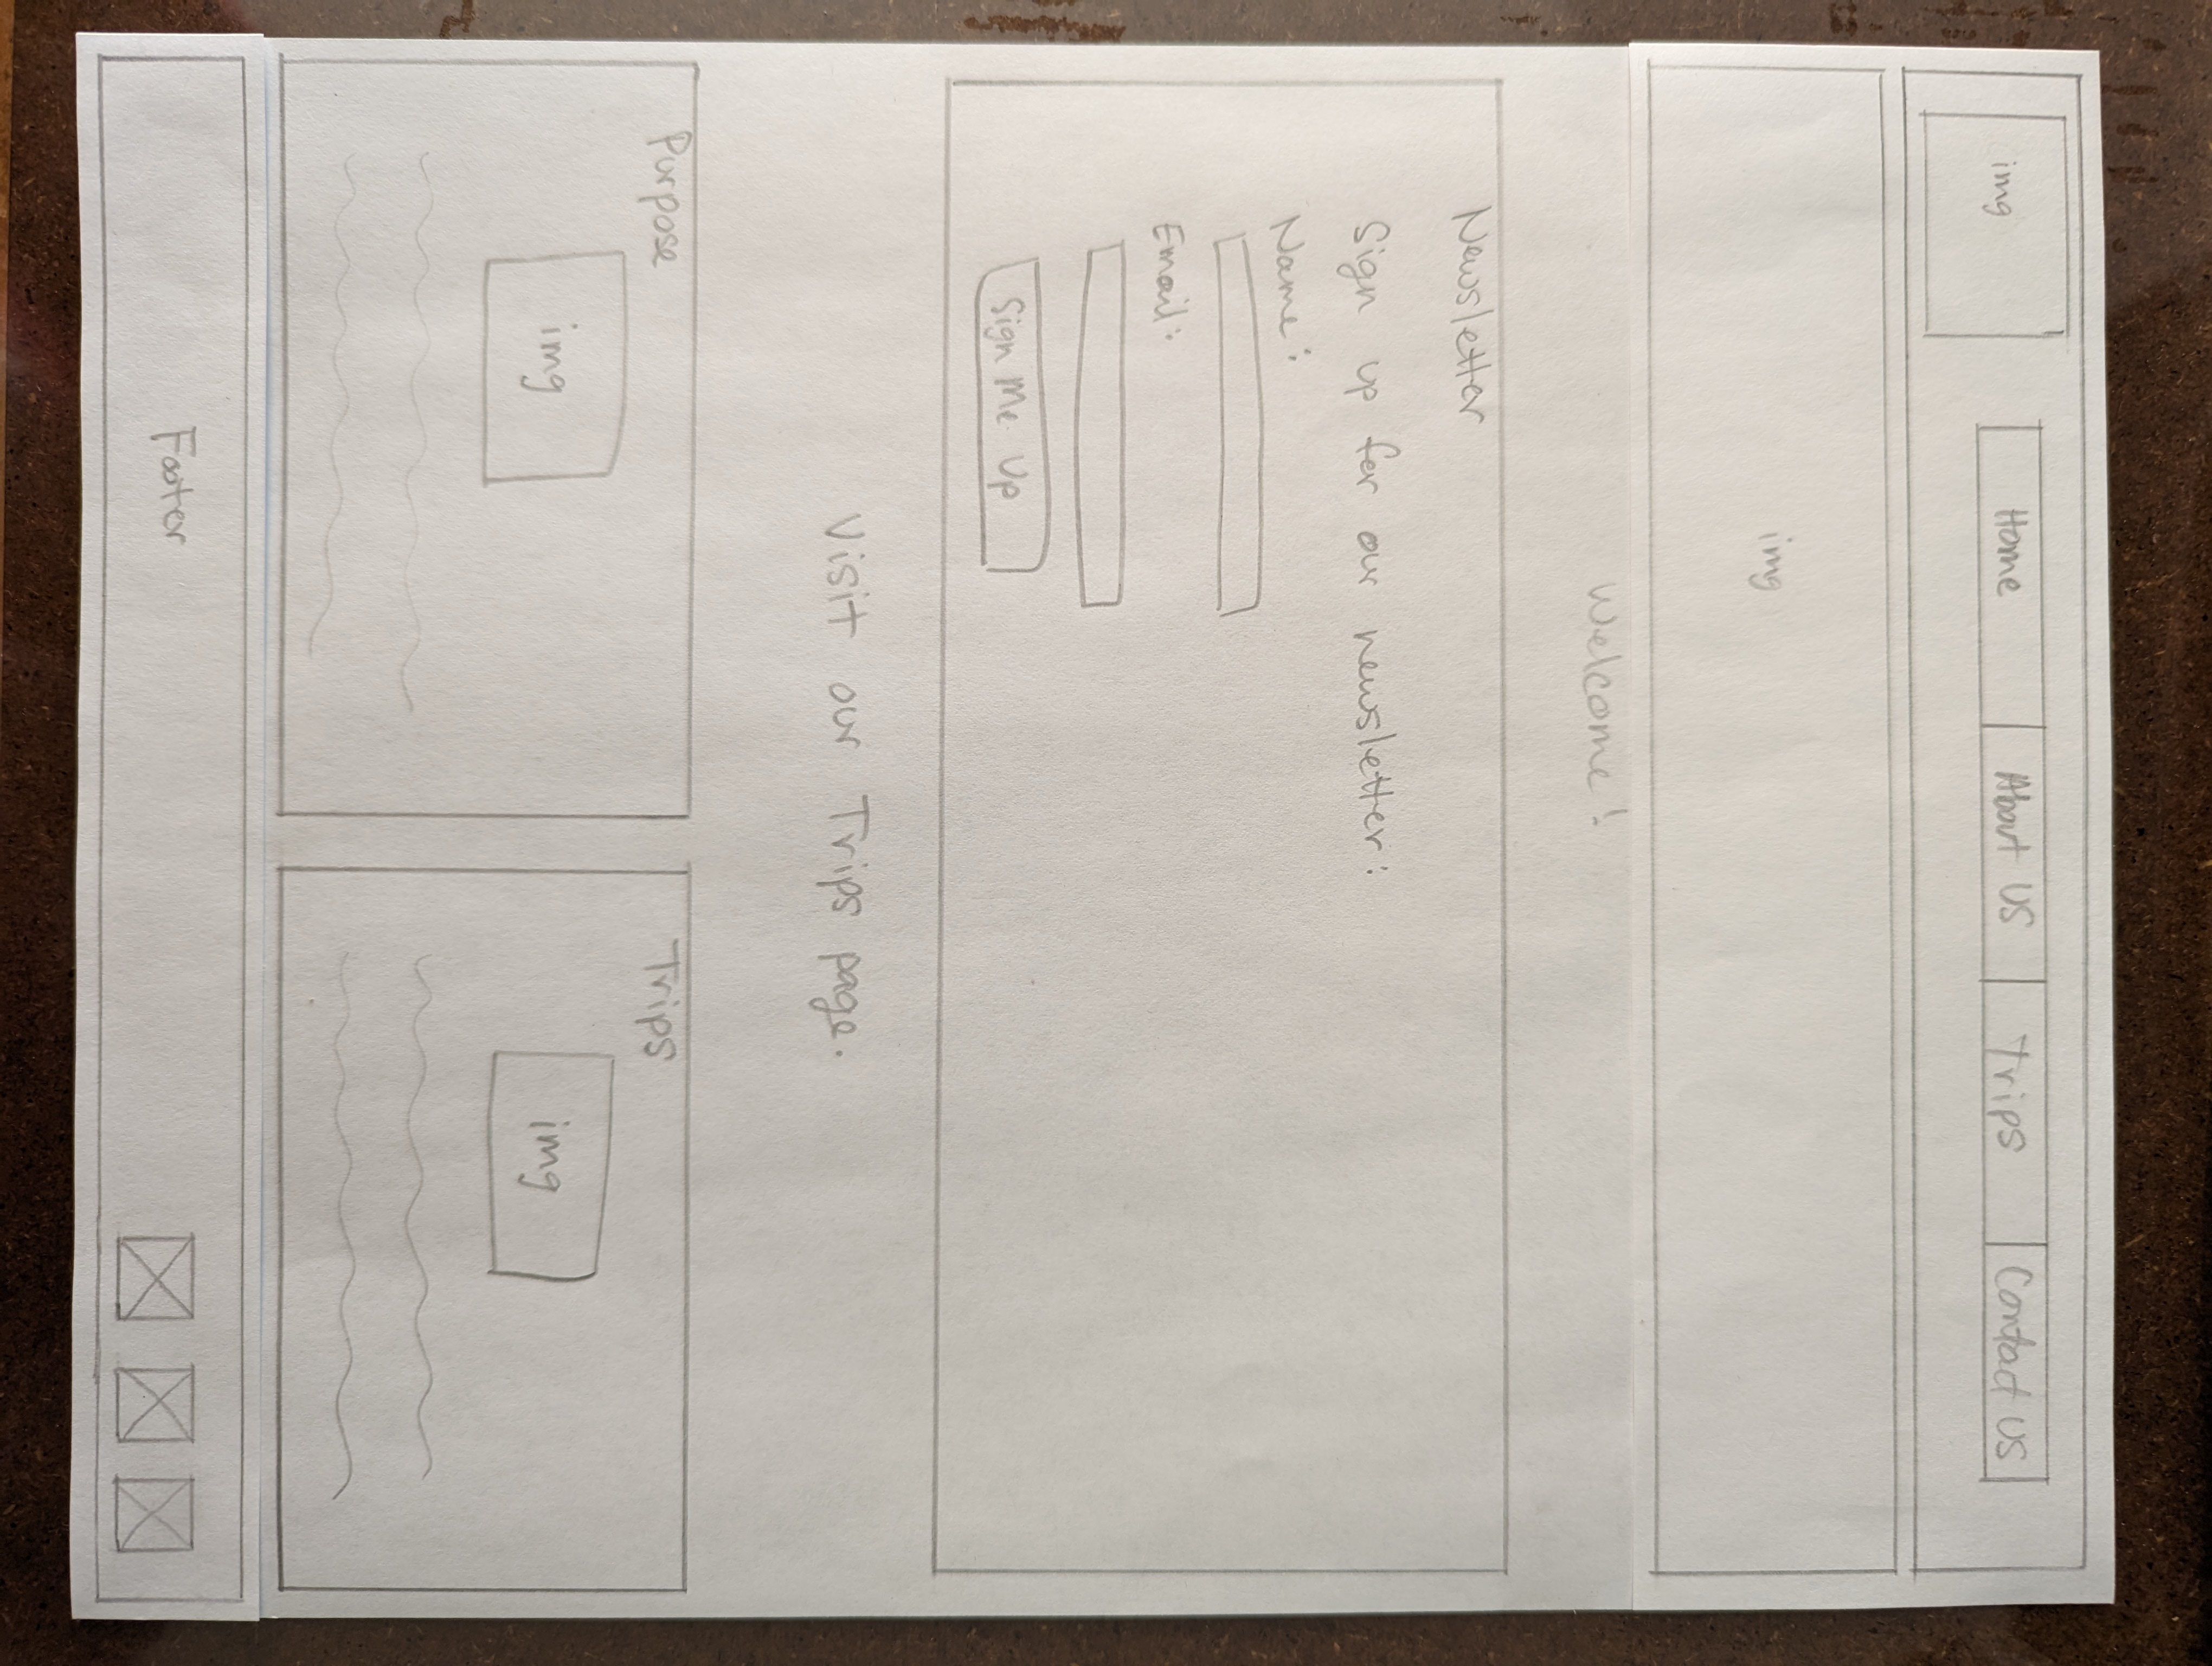 img
Home About US Trips Contact US
img
Welcome!
Newsletter
Sign up for our newsletter:
Name:
Email:
Sign Me Up
Visit our Trips page.
Purpose
img
Trips
img
Footer